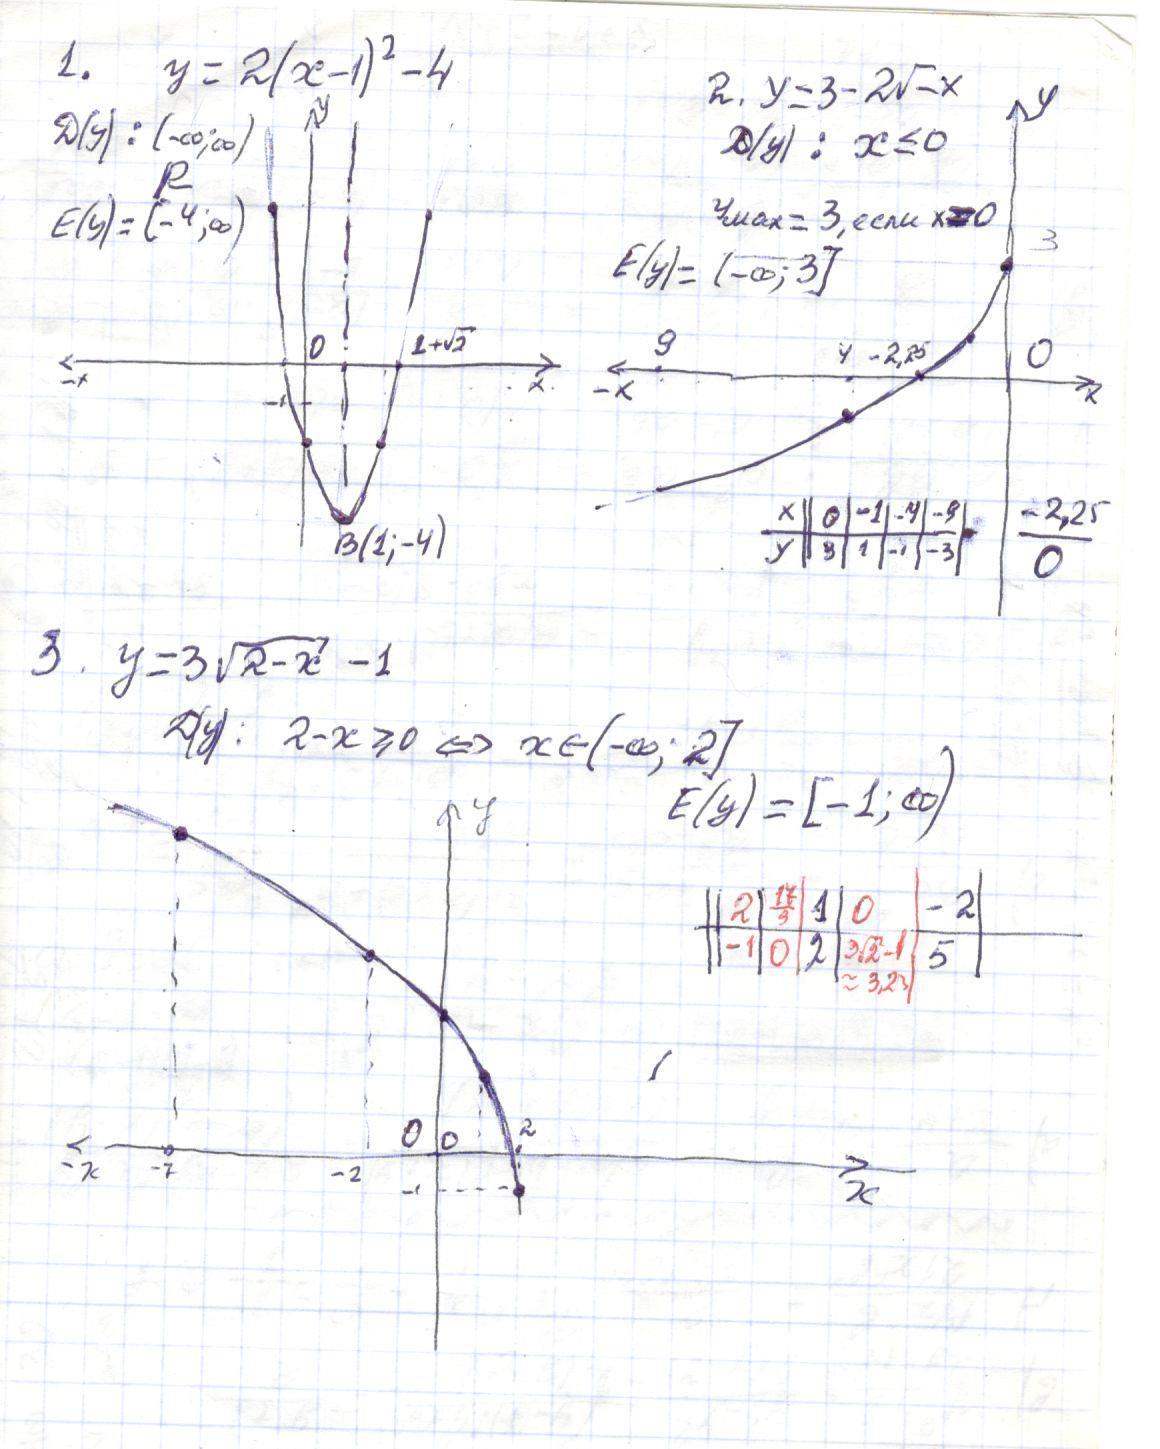 1. y = 2(x-1)² - 4
D(y) : (-∞;∞)
R
E(y) = [-4;∞)
y
0
1+√2
-x
x
-1
B(1;-4)
2. y = 3 - 2√-x
D(y) : x ≤ 0
yмах = 3, если x=0
E(y) = (-∞; 3]
y
3
9
4
-2,25
0
-x
x
x | 0 | -1 | -4 | -9 | -2,25
y | 3 | 1 | -1 | -3 | 0
3. y = 3√2-x - 1
D(y) : 2-x ≥ 0 ⇔ x ∈ (-∞; 2]
E(y) = [-1; ∞)
y
2 | 17/9 | 1 | 0 | -2
-1 | 0 | 2 | 3√2-1 | 5
≈ 3,23
0 0 2
-x -7 -2
x
-1